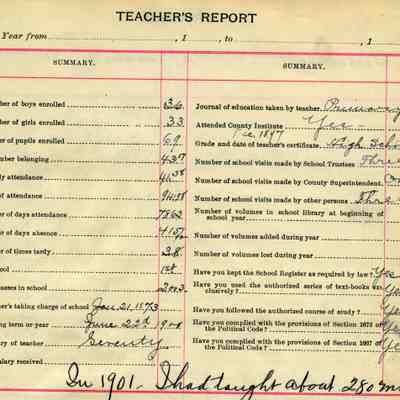 TEACHER'S REPORT
Year from , 1 , to , 1
SUMMARY.
ber of boys enrolled 36
ber of girls enrolled 33
er of pupils enrolled 69
mber belonging
ly attendance
of attendance
r of days attendance
r of days absence
r of times tardy 28
ool 1st
asses in school
er's taking charge of school Jan 21, 1873
ng term or year June 22nd 1900
ry of teacher Seventy
alary received
SUMMARY.
Journal of education taken by teacher. Primary
Attended County Institute Yes
Dec. 1897
Grade and date of teacher's certificate. High Scho
Number of school visits made by School Trustees Three
Number of school visits made by County Superintendent.
Number of school visits made by other persons
Number of volumes in school library at beginning of
school year
Number of volumes added during year
Number of volumes lost during year
Have you kept the School Register as required by law? Yes
Have you used the authorized series of text-books ex-
clusively? Yes
Have you followed the authorized course of study? Yes
Have you complied with the provisions of Section 1672 of
the Political Code? Yes
Have you complied with the provisions of Section 1667 of
the Political Code? Yes
In 1901 - I had taught about 280 m